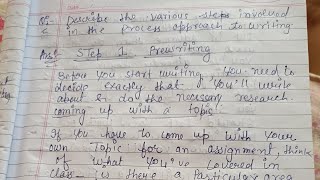 Q1- Describe the various steps involved
in the Process approach to writing
Ans:- STep 1 Prewriting
Before you start writing, you need to
decide exactly that you'll write
about & do the necessary research
coming up with a topic
If you have to come up with your
own Topic for an assignment, think
of what you've covered in
class - is there a Particular area